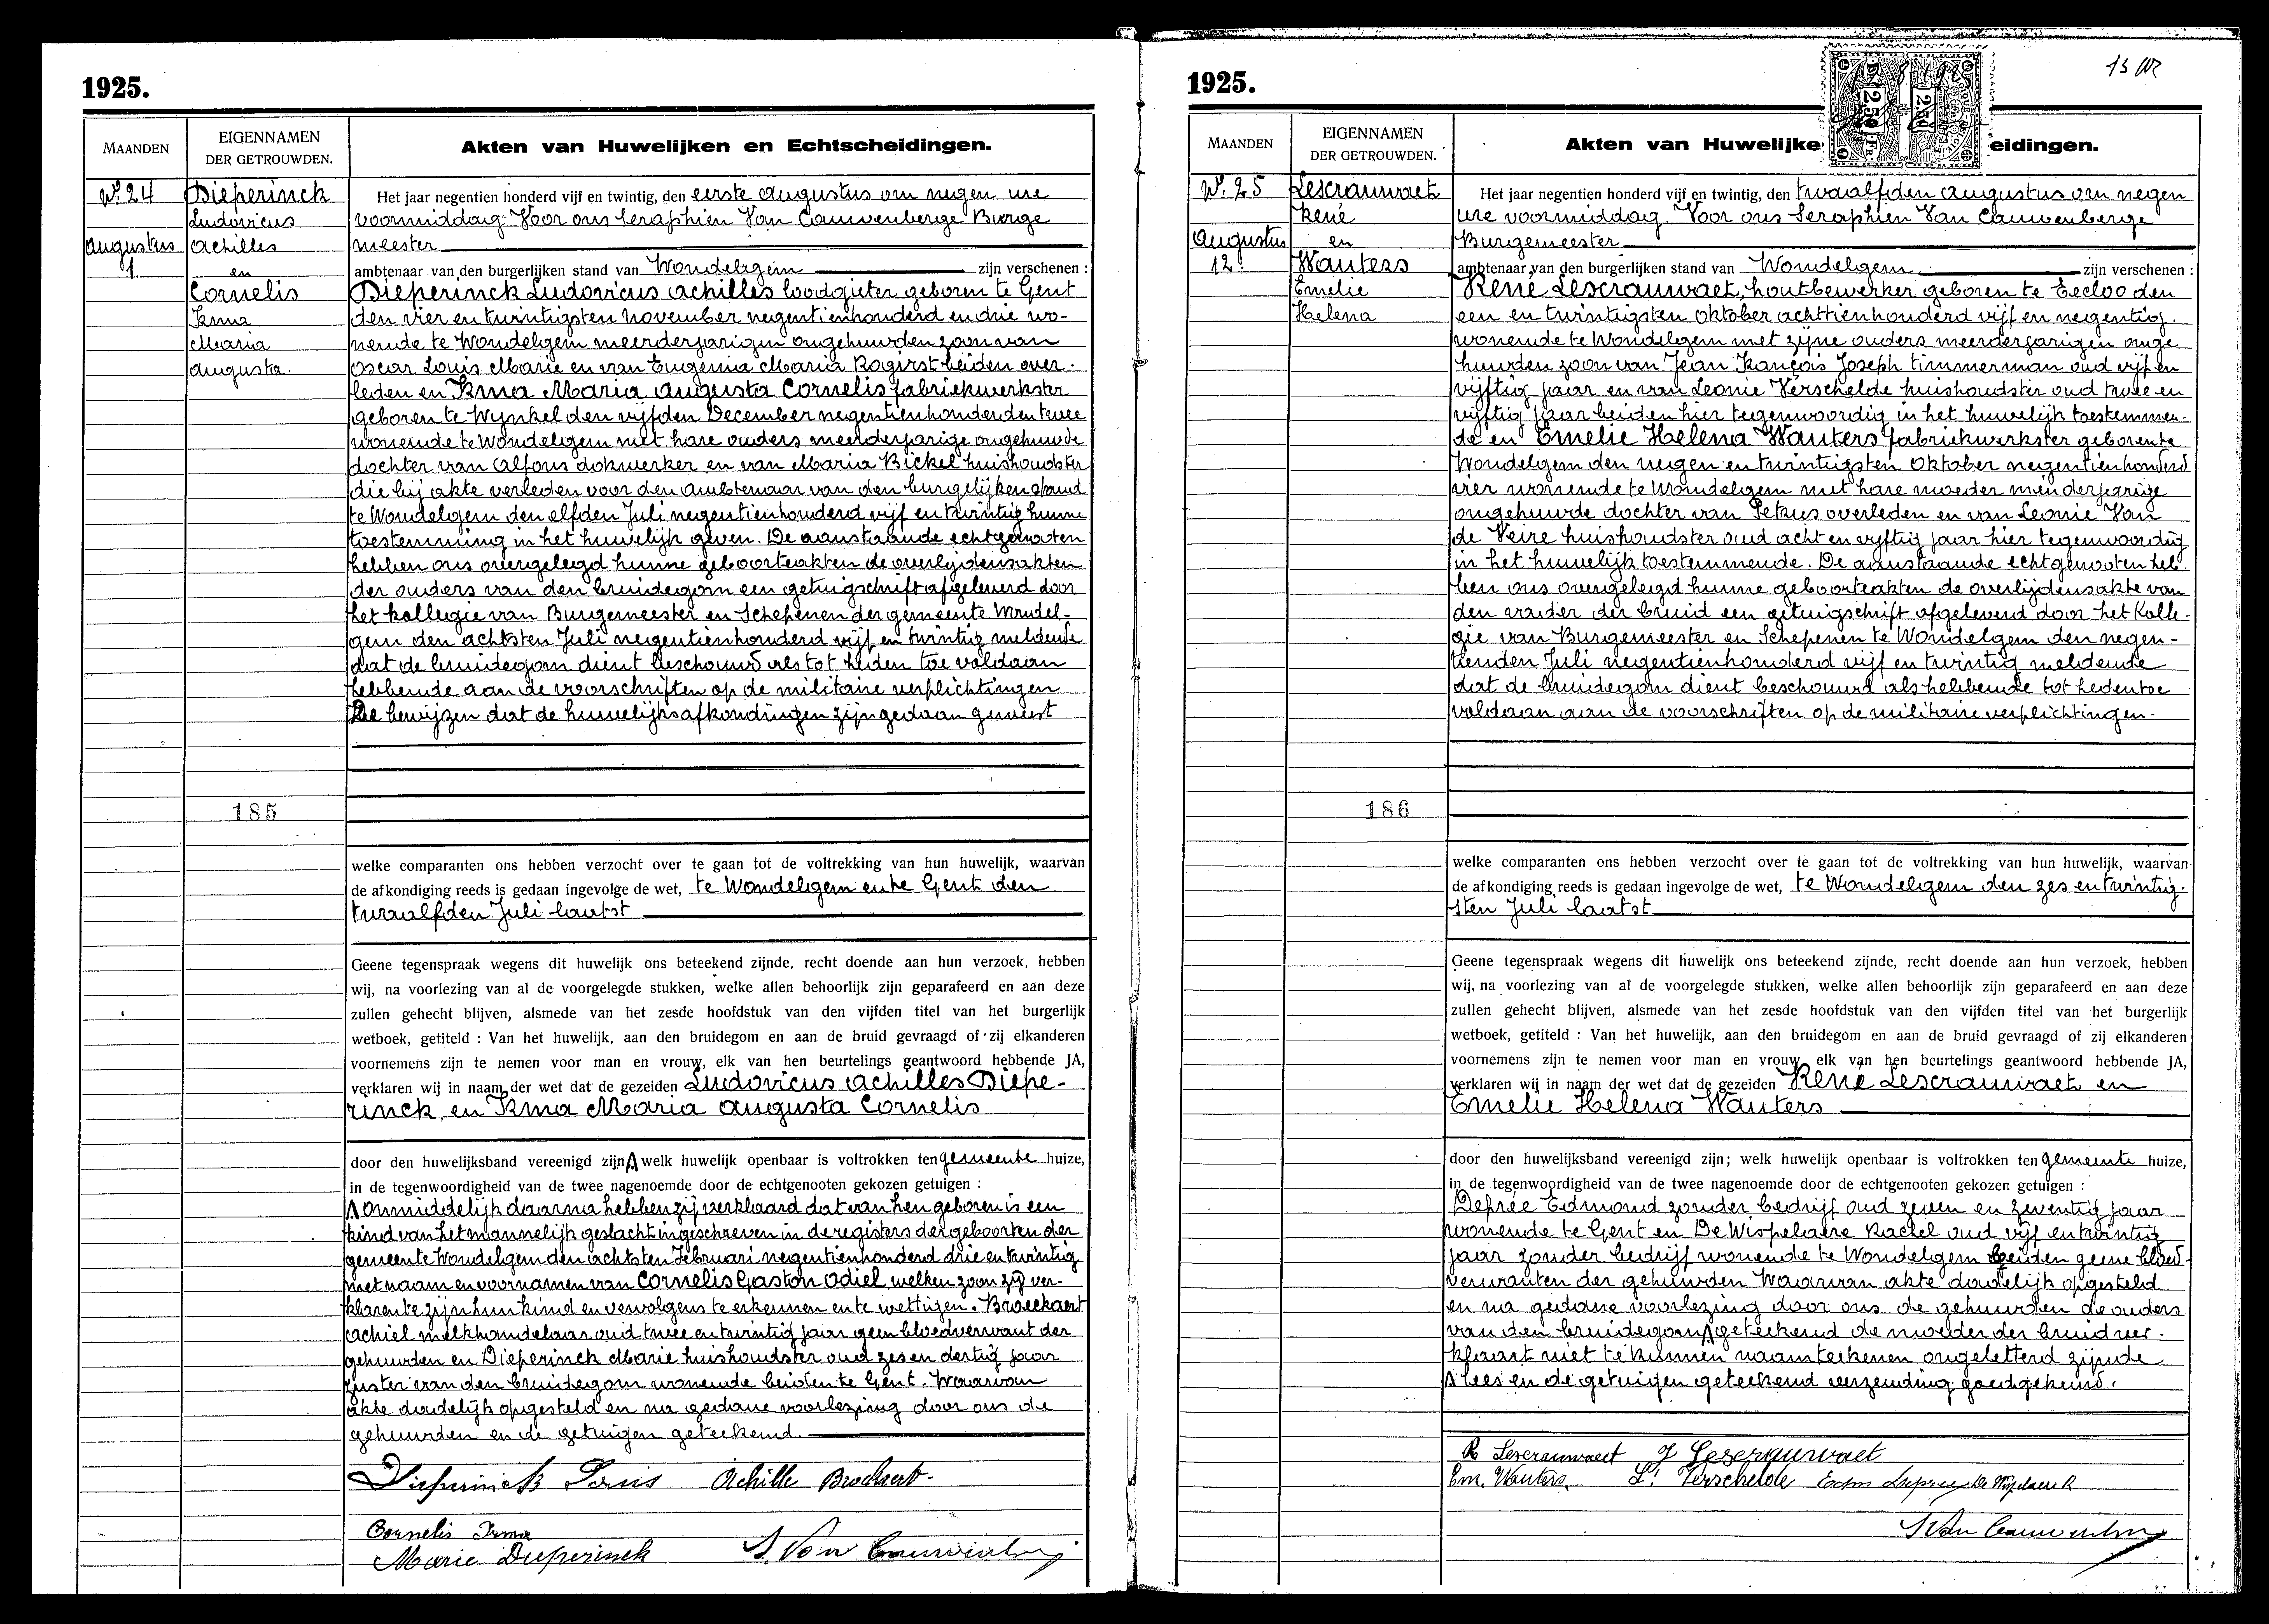 1925.
MAANDEN
EIGENNAMEN
DER GETROUWDEN.
Akten van Huwelijken en Echtscheidingen.
N° 24
Augustus
1.
Dieperinck
Ludovicus
Achilles
en
Cornelis
Irma
Maria
Augusta.
185
Het jaar negentien honderd vijf en twintig, den eerste Augustus om negen ure
voormiddag Voor ons Seraphien Van Cauwenberge Burge
meester
ambtenaar van den burgerlijken stand van Wondelgem zijn verschenen :
Dieperinck Ludovicus Achilles loodgieter geboren te Gent
den vier en twintigsten November negentienhonderd en drie wo-
nende te Wondelgem meerderjarigen ongehuwden zoon van
Oscar Louis Marie en van Eugenia Maria Rogirst beiden over-
leden en Irma Maria Augusta Cornelis fabriekwerkster
geboren te Wynkel den vijfden December negentienhonderden twee
wonende te Wondelgem met hare ouders meerderjarige ongehuwde
dochter van Alfons dokwerker en van Maria Bickel huishoudster
die bij akte verleden voor den ambtenaar van den burgelijken stand
te Wondelgem den elfden Juli negentienhonderd vijf en twintig hunne
toestemming in het huwelijk geven. De aanstaande echtgenooten
hebben ons overgelegd hunne geboorteakten de overlijdensakten
der ouders van den bruidegom een getuigschrift afgeleverd door
het kollegie van Burgemeester en Schepenen der gemeente Wondel-
gem den achtsten Juli negentienhonderd vijf en twintig meldende
dat de bruidegom dient beschouwd als tot heden toe voldaan
hebbende aan de voorschriften op de militaire verplichtingen
De bewijzen dat de huwelijksafkondingen zijn gedaan geweest
welke comparanten ons hebben verzocht over te gaan tot de voltrekking van hun huwelijk, waarvan
de afkondiging reeds is gedaan ingevolge de wet, te Wondelgem en te Gent den
twaalfden Juli laatst
Geene tegenspraak wegens dit huwelijk ons beteekend zijnde, recht doende aan hun verzoek, hebben
wij, na voorlezing van al de voorgelegde stukken, welke allen behoorlijk zijn geparafeerd en aan deze
zullen gehecht blijven, alsmede van het zesde hoofdstuk van den vijfden titel van het burgerlijk
wetboek, getiteld : Van het huwelijk, aan den bruidegom en aan de bruid gevraagd of zij elkanderen
voornemens zijn te nemen voor man en vrouw, elk van hen beurtelings geantwoord hebbende JA,
verklaren wij in naam der wet dat de gezeiden Ludovicus Achilles Diepe-
rinck en Irma Maria Augusta Cornelis
door den huwelijksband vereenigd zijn welk huwelijk openbaar is voltrokken ten gemeente huize,
in de tegenwoordigheid van de twee nagenoemde door de echtgenooten gekozen getuigen :
Onmiddelijk daarna hebben zij verklaard dat van hen geboren is een
kind van het mannelijk geslacht ingeschreven in de registers der geboorten der
gemeente Wondelgem den achtsten Februari negentienhonderd drie en twintig
met naam en voornamen van Cornelis Gaston Odiel welken zoon zij ver-
klaren te zijn hun kind en vervolgens te erkennen en te wettigen. Broeckaert
Achiel melkhandelaar oud twee en twintig jaar geen bloedverwant der
gehuwden en Dieperinck Marie huishoudster oud zes en dertig jaar
zuster van den bruidegom wonende beiden te Gent. Waarvan
akte dadelijk opgesteld en na gedane voorlezing door ons de
gehuwden en de getuigen geteekend.
Dieperinck Louis Achille Brockaert
Cornelis Irma
Marie Dieperinck S. Van Cauwenberge
1925.
13
2.50 Fr
2.50
MAANDEN
EIGENNAMEN
DER GETROUWDEN.
Akten van Huwelijke eidingen.
N° 25
Augustus
12.
Lescrauwaet
René
en
Wauters
Emelie
Helena
186
Het jaar negentien honderd vijf en twintig, den twaalfden Augustus om negen
ure voormiddag Voor ons Seraphien Van Cauwenberge
Burgemeester
ambtenaar van den burgerlijken stand van Wondelgem zijn verschenen :
René Lescrauwaet, houtbewerker geboren te Eecloo den
een en twintigsten Oktober achttienhonderd vijf en negentig.
wonende te Wondelgem met zijne ouders meerderjarigen onge
huwden zoon van Jean François Joseph timmerman oud vijf en
vijftig jaar en van Leonie Verschelde huishoudster oud twee en
vijftig jaar beiden hier tegenwoordig in het huwelijk toestemmen-
de en Emelie Helena Wauters fabriekwerkster geboren te
Wondelgem den negen en twintigsten Oktober negentienhonderd
vier wonende te Wondelgem met hare moeder minderjarige
ongehuwde dochter van Petrus overleden en van Leonie Van
de Veire huishoudster oud acht en vijftig jaar hier tegenwoordig
in het huwelijk toestemmende. De aanstaande echtgenooten heb-
ben ons overgelegd hunne geboorteakten de overlijdensakte van
den vader der bruid een getuigschrift afgeleverd door het Kolle-
gie van Burgemeester en Schepenen te Wondelgem den negen-
tienden Juli negentienhonderd vijf en twintig meldende
dat de bruidegom dient beschouwd als hebbende tot heden toe
voldaan aan de voorschriften op de militaire verplichtingen.
welke comparanten ons hebben verzocht over te gaan tot de voltrekking van hun huwelijk, waarvan
de afkondiging reeds is gedaan ingevolge de wet, te Wondelgem den zes en twintig-
sten Juli laatst
Geene tegenspraak wegens dit huwelijk ons beteekend zijnde, recht doende aan hun verzoek, hebben
wij, na voorlezing van al de voorgelegde stukken, welke allen behoorlijk zijn geparafeerd en aan deze
zullen gehecht blijven, alsmede van het zesde hoofdstuk van den vijfden titel van het burgerlijk
wetboek, getiteld : Van het huwelijk, aan den bruidegom en aan de bruid gevraagd of zij elkanderen
voornemens zijn te nemen voor man en vrouw, elk van hen beurtelings geantwoord hebbende JA,
verklaren wij in naam der wet dat de gezeiden René Lescrauwaet en
Emelie Helena Wauters
door den huwelijksband vereenigd zijn; welk huwelijk openbaar is voltrokken ten gemeente huize,
in de tegenwoordigheid van de twee nagenoemde door de echtgenooten gekozen getuigen :
Deprée Edmond zonder bedrijf oud zeven en zeventig jaar
wonende te Gent en De Wispelaere Rachel oud vijf en twintig
jaar zonder bedrijf wonende te Wondelgem beiden geene bloed-
verwanten der gehuwden Waarvan akte dadelijk opgesteld
en na gedane voorlezing door ons de gehuwden de ouders
van den bruidegom geteekend de moeder der bruid ver-
klaart niet te kunnen naamteekenen ongeletterd zijnde
lees en de getuigen geteekend verzending goedgekeurd.
R Lescrauwaet J Lescrauwaet
Em. Wauters. L. Verschelde Edm Depree De Wispelaere R
S Van Cauwenberge